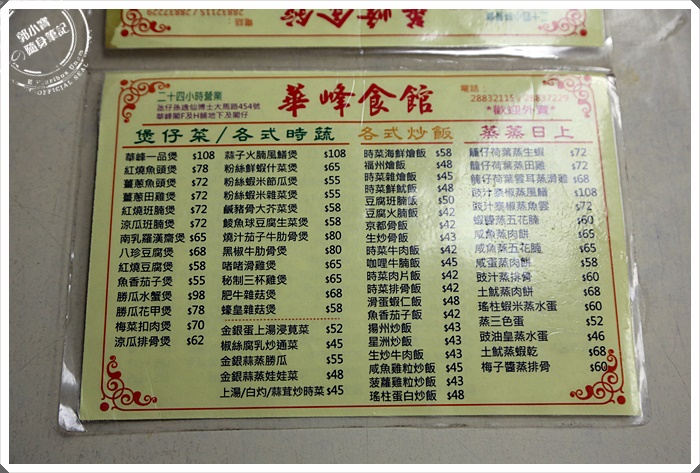 郭小寶
隨身筆記
OFFICIAL SEAL
華峰食館
二十四小時營業
氹仔孫逸仙博士大馬路454號
華峰閣F及H舖地下及閣仔
華峰食館
電話:
28832115 28837229
*歡迎外賣*
煲仔菜/各式時蔬
華峰一品煲 $108
紅燒魚頭煲 $78
薑蔥魚頭煲 $72
薑蔥田雞煲 $72
紅燒班腩煲 $72
涼瓜班腩煲 $72
南乳羅漢齋煲 $65
八珍豆腐煲 $68
紅燒豆腐煲 $58
魚香茄子煲 $55
勝瓜水蟹煲 $98
勝瓜花甲煲 $78
梅菜扣肉煲 $70
涼瓜排骨煲 $62
蒜子火腩風鱔煲 $108
粉絲鮮蝦什菜煲 $65
粉絲蝦米節瓜煲 $55
粉絲蝦米雜菜煲 $55
鹹豬骨大芥菜煲 $58
鯪魚球豆腐生菜煲 $58
燒汁茄子牛肋骨煲 $80
黑椒牛肋骨煲 $80
啫啫滑雞煲 $65
秘制三杯雞煲 $65
肥牛雜菇煲 $68
蜂皇雜菇煲 $58
金銀蛋上湯浸莧菜 $52
椒絲腐乳炒通菜 $45
金銀蒜蒸勝瓜 $55
金銀蒜蒸娃娃菜 $48
上湯/白灼/蒜茸炒時菜 $45
各式炒飯
時菜海鮮燴飯 $58
福州燴飯 $48
時菜雜燴飯 $45
時菜鮮魷飯 $48
豆腐班腩飯 $50
豆腐火腩飯 $42
京都骨飯 $43
生炒骨飯 $43
時菜牛肉飯 $43
咖哩牛腩飯 $45
時菜肉片飯 $42
時菜排骨飯 $42
滑蛋蝦仁飯 $48
魚香茄子飯 $42
揚州炒飯 $43
星洲炒飯 $43
生炒牛肉飯 $43
咸魚雞粒炒飯 $45
菠蘿雞粒炒飯 $43
瑤柱蛋白炒飯 $48
蒸蒸日上
籠仔荷葉蒸生蝦 $72
籠仔荷葉蒸田雞 $72
籠仔荷葉雲耳蒸滑雞 $68
豉汁凉椒蒸風鱔 $108
豉汁凉椒蒸魚雲 $72
蝦醬蒸五花腩 $60
咸魚蒸肉餅 $65
咸魚蒸五花腩 $65
咸蛋蒸肉餅 $58
豉汁蒸排骨 $60
土魷蒸肉餅 $68
瑤柱蝦米蒸水蛋 $60
蒸三色蛋 $52
豉油皇蒸水蛋 $46
土魷蒸蝦乾 $68
梅子醬蒸排骨 $60